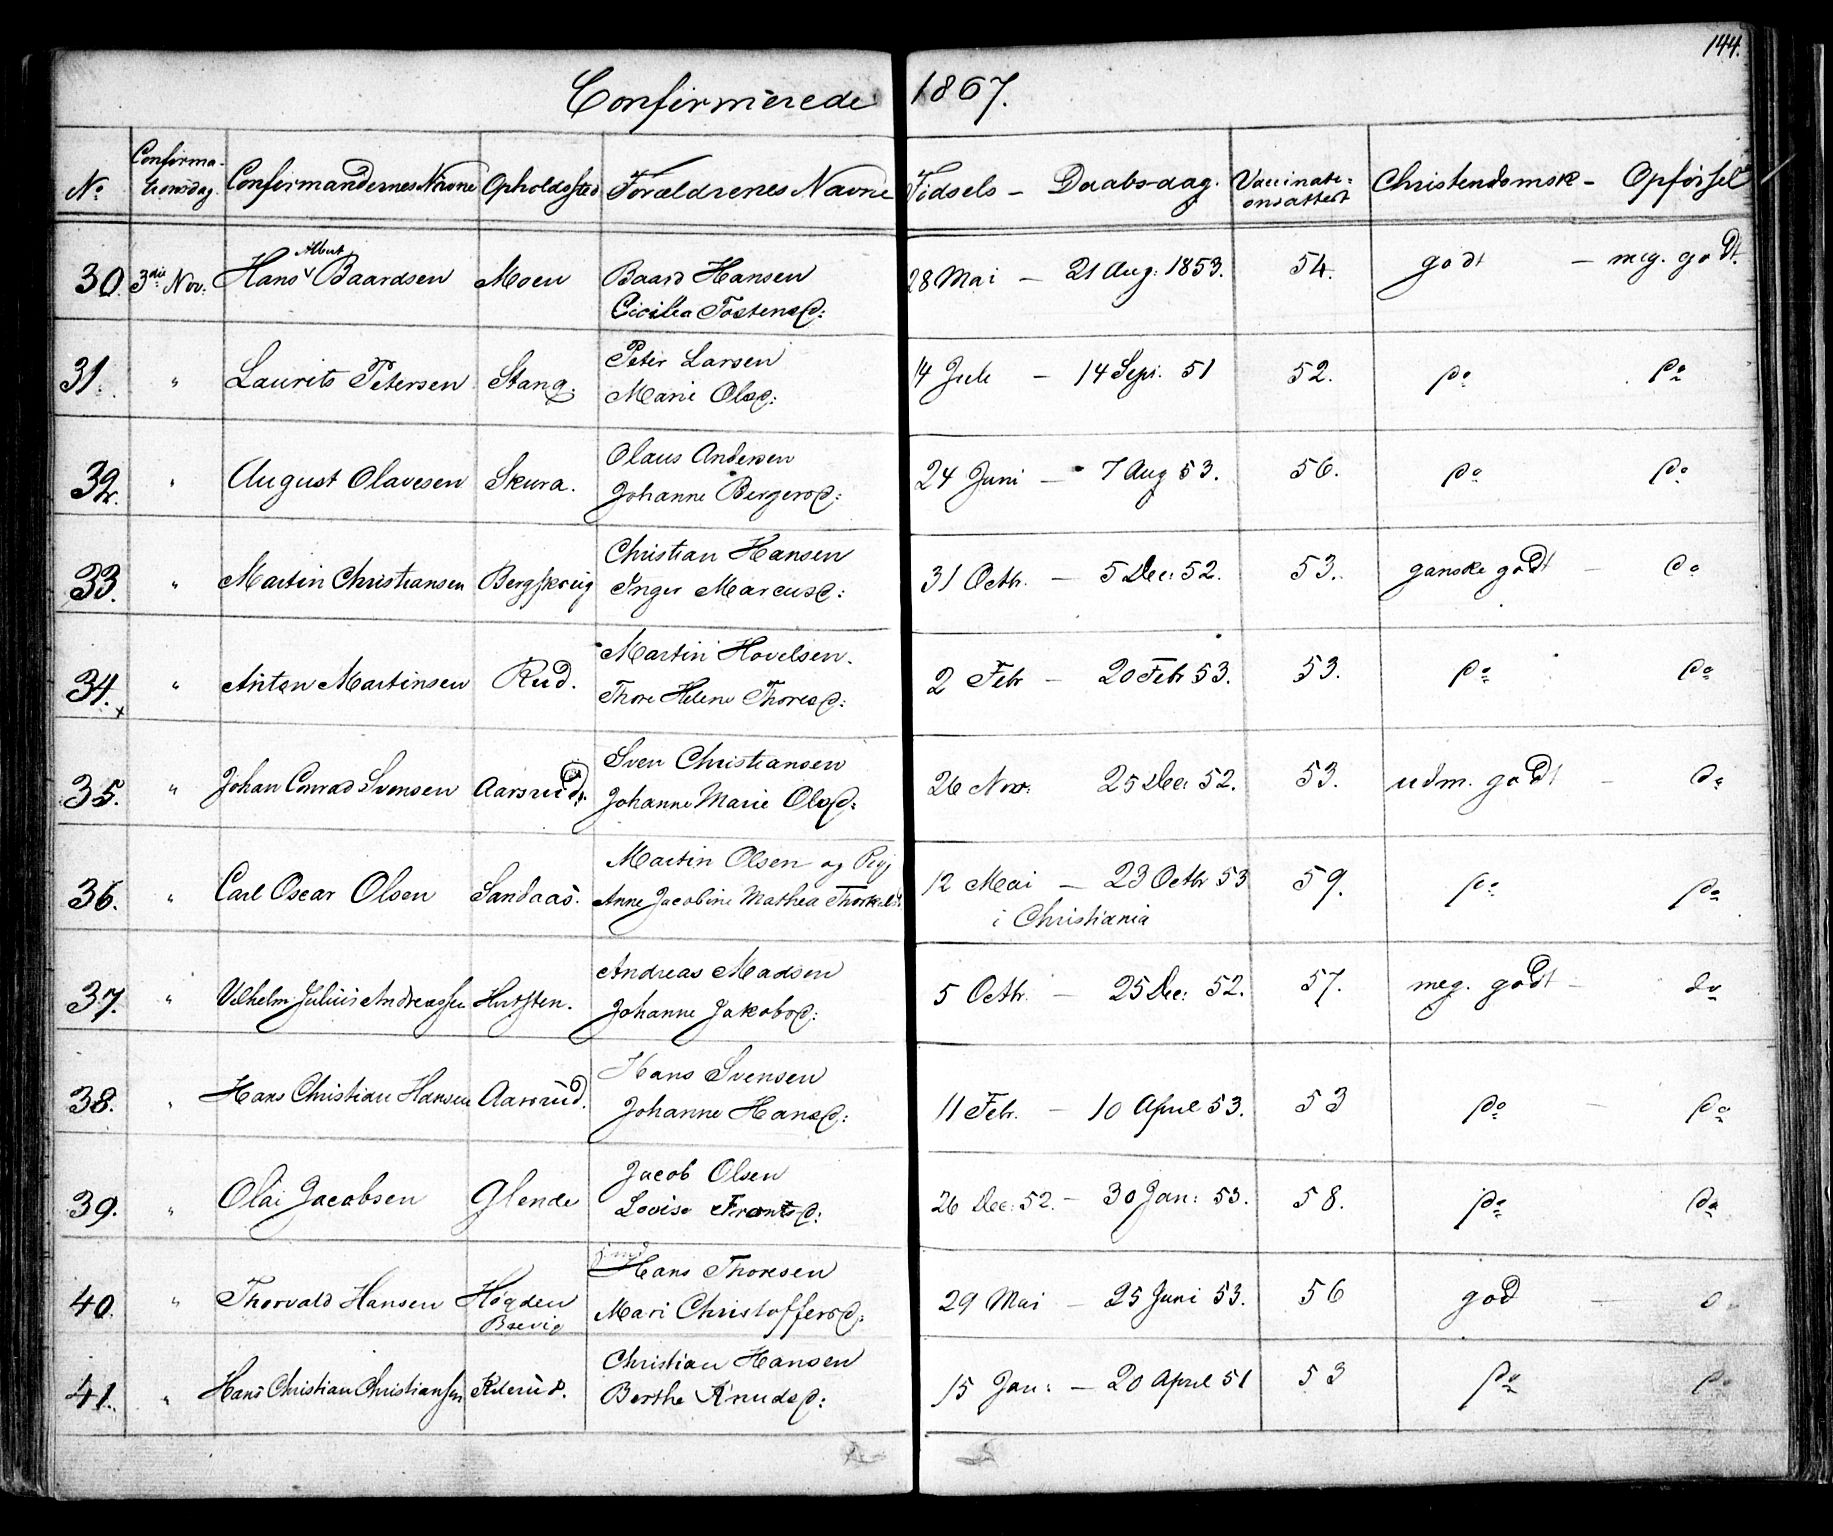 144.
Confirmerede 1867.
No Confirma-tionsdag. Confirmandernes Navne Opholdssted Forældrenes Navne Fødsels - Daabsdag. Vaccinati-onsattest Christendomsk - Opførsel
Albert
30. 3die Nov: Hans Baardsen Moen Baard Hansen 28 Mai - 21 Aug: 1853. 54. godt - meg. godt.
Cicilia Tostensd:
Peter Larsen
31. " Laurits Petersen Stang. Marie Olsd: 14 Juli - 14 Sept. 51 52. do do
Olaus Andersen
32. " August Olavesen Skura. Johanne Bergersd: 24 Juni - 7 Aug 53. 56. do do
Christian Hansen
33. " Martin Christiansen Inger Marcusd: 31 Octb. - 5 Dec: 52. 53. ganske godt - do
Martin Hovelsen.
34. " Anton Martinsen Rud. Thore Helene Thoresd: 2 Feb - 20 Feb 53. 53. do do
Sven Christiansen
35. " Johan Conrad Svensen Aarsrud. Johanne Marie Olsd: 26 Nov: 25 Dec: 52. 53. udm. godt - do
Martin Olsen og Pig
36. " Carl Oscar Olsen Sandaas. Anne Jacobine Mathea 12 Mai - 23 Octb 53 59. do do
i Christiania
Andreas Madsen
37. " Vilhelm Julius Andreassen Johanne Jakobsd: 5 Octb. - 25 Dec: 52. 57. meg. godt - do
Hans Svensen
38. " Hans Christian Hansen Aarsrud. Johanne Hansd: 11 Feb. - 10 April 53. 53 do - do
Jacob Olsen
39. " Olai Jacobsen Glende Lovise Frantsd: 26 Dec: 52. - 30 Jan: 53. 58. do do
Hans Thoresen
40. " Thorvald Hansen Høgden Brevig Mari Christoffersd: 29 Mai - 25 Juni 53. 56 god -
Christian Hansen
41. " Hans Christian Christiansen Berthe Knudsd: 15 Jan: - 20 April 51 53 do do